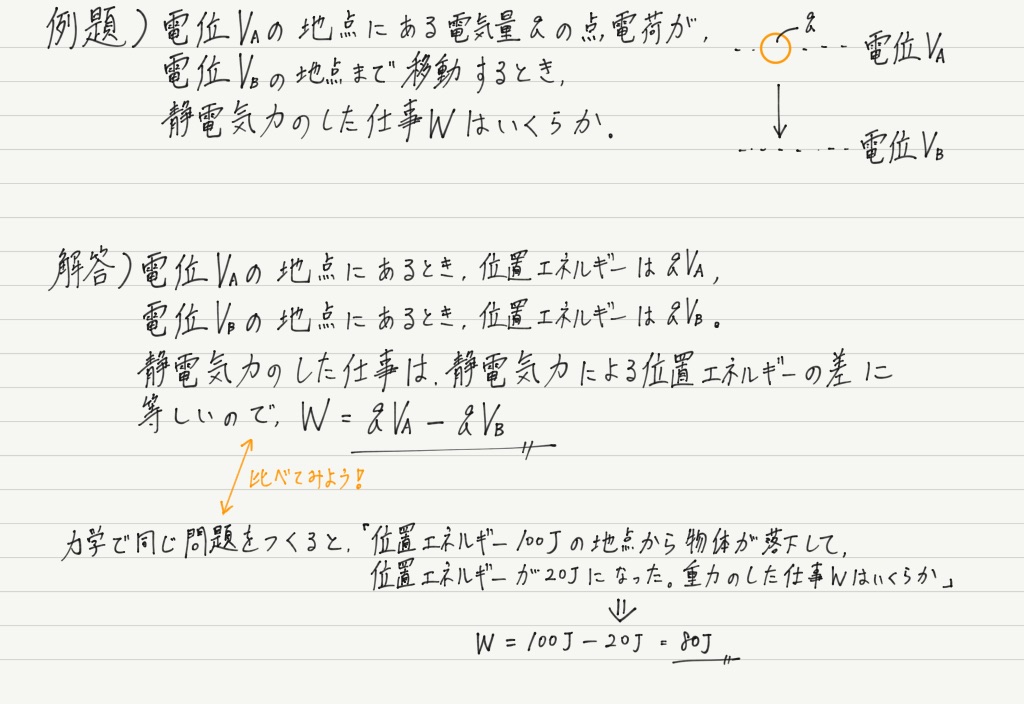 例題）電位VAの地点にある電気量qの点電荷が，
電位VBの地点まで移動するとき，
静電気力のした仕事Wはいくらか．
q
電位VA
電位VB
解答）電位VAの地点にあるとき，位置エネルギーはqVA，
電位VBの地点にあるとき，位置エネルギーはqVB。
静電気力のした仕事は，静電気力による位置エネルギーの差に
等しいので，W = qVA − qVB
比べてみよう！
力学で同じ問題をつくると，「位置エネルギー100Jの地点から物体が落下して，
位置エネルギーが20Jになった。重力のした仕事Wはいくらか」
⇓
W = 100J − 20J = 80J